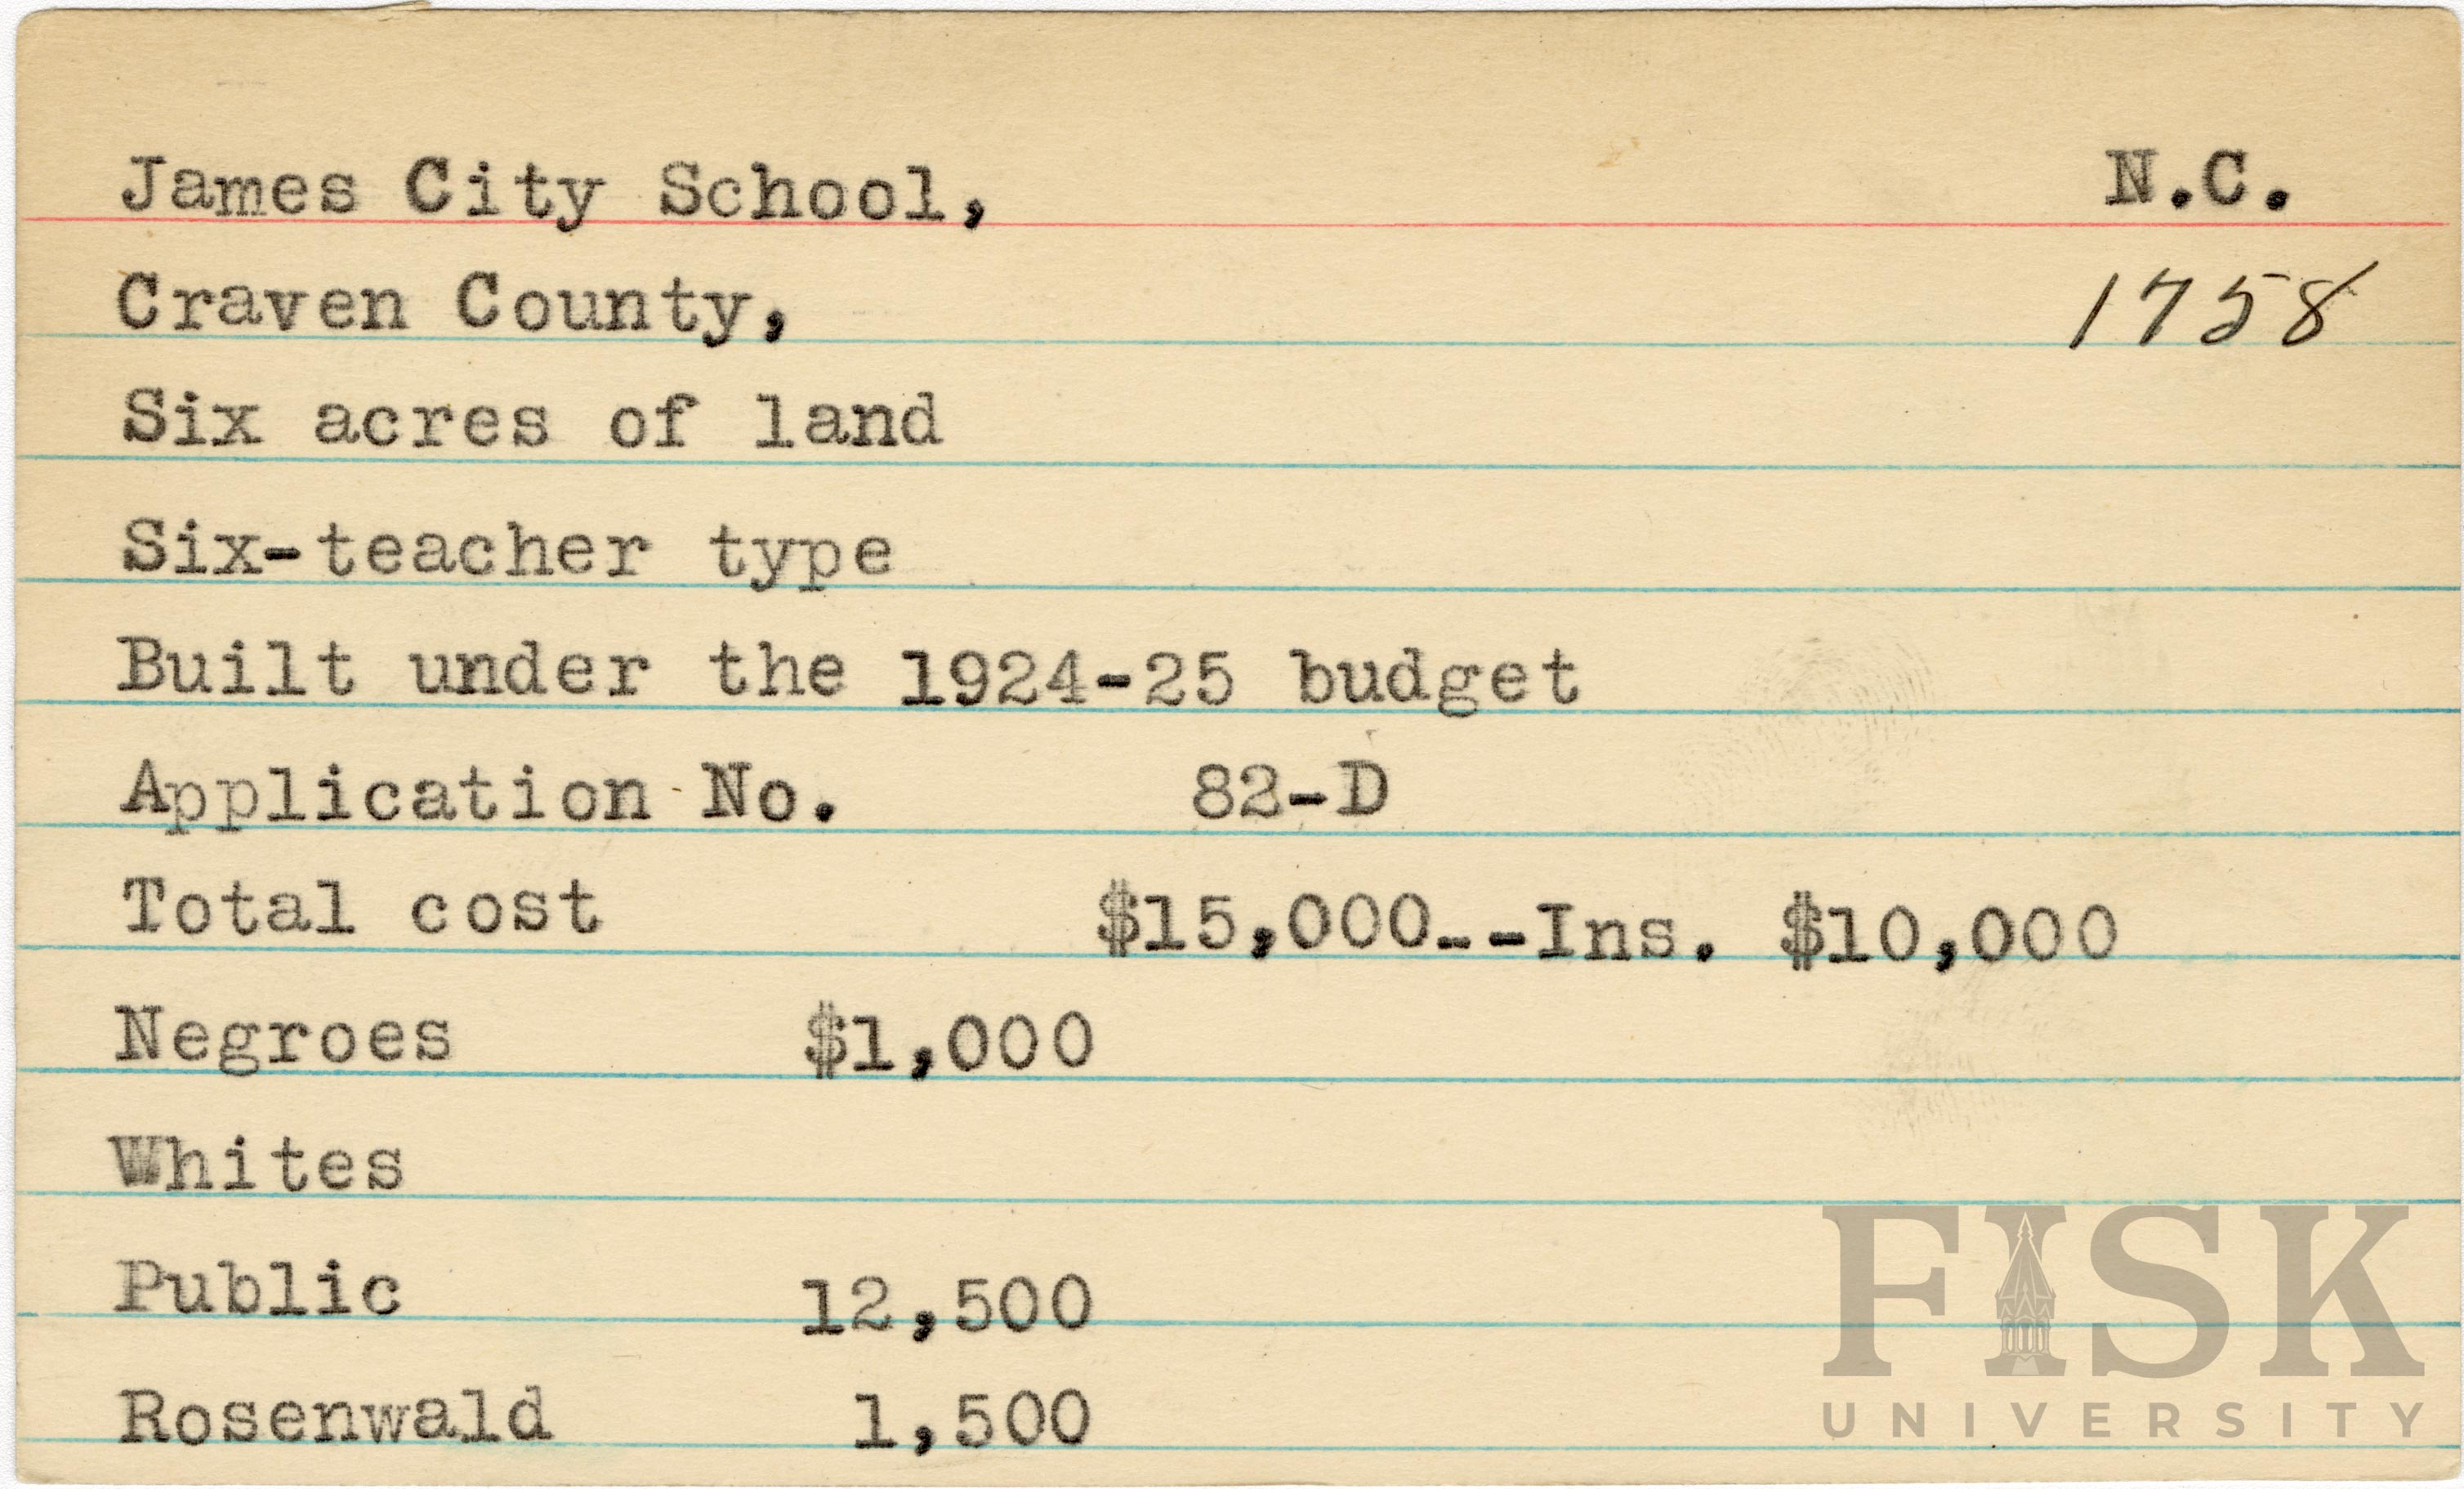 James City School, N.C.
Craven County, 1758
Six acres of land
Six-teacher type
Built under the 1924-25 budget
Application No. 82-D
Total cost $15,000--Ins. $10,000
Negroes $1,000
Whites
Public 12,500
Rosenwald 1,500
FISK
UNIVERSITY